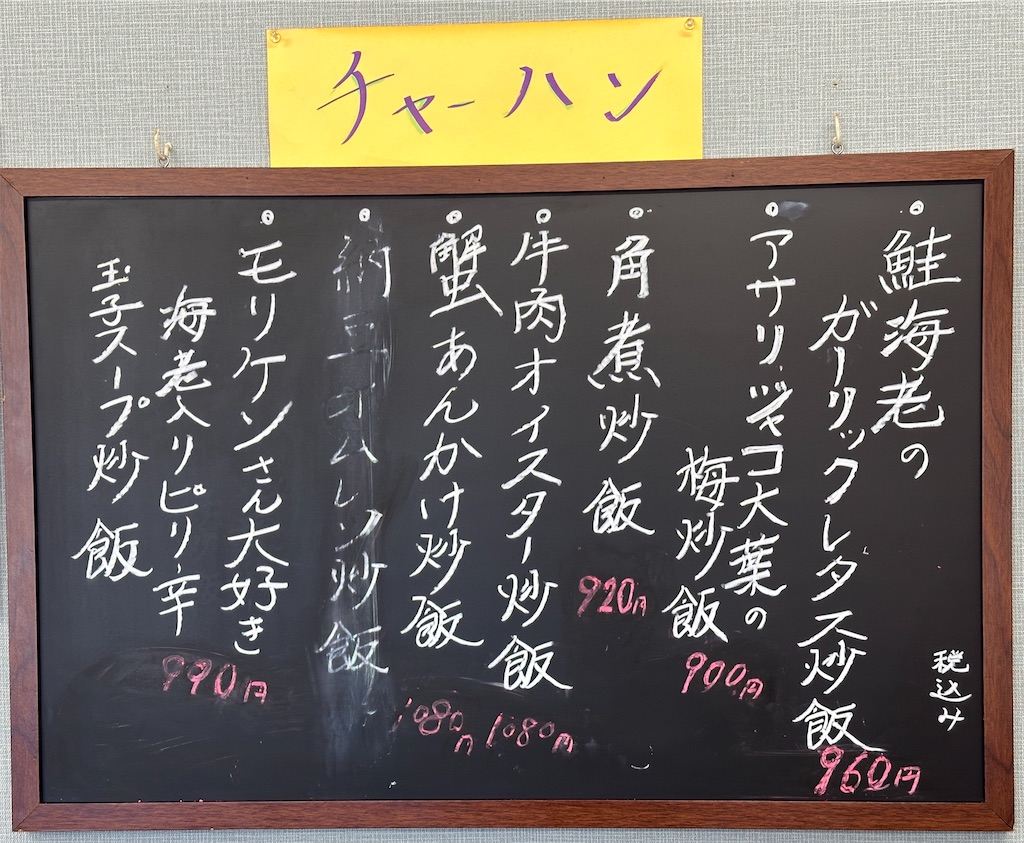 チャーハン
税込み
・鮭海老の
ガーリックレタス炒飯
960円
・アサリ、ジャコ大葉の
梅炒飯
900円
・角煮炒飯
920円
・牛肉オイスター炒飯
1080円
・蟹あんかけ炒飯
1080円
・納豆
レン炒飯
・モリケンさん大好き
海老入りピリ辛
玉子スープ炒飯
990円